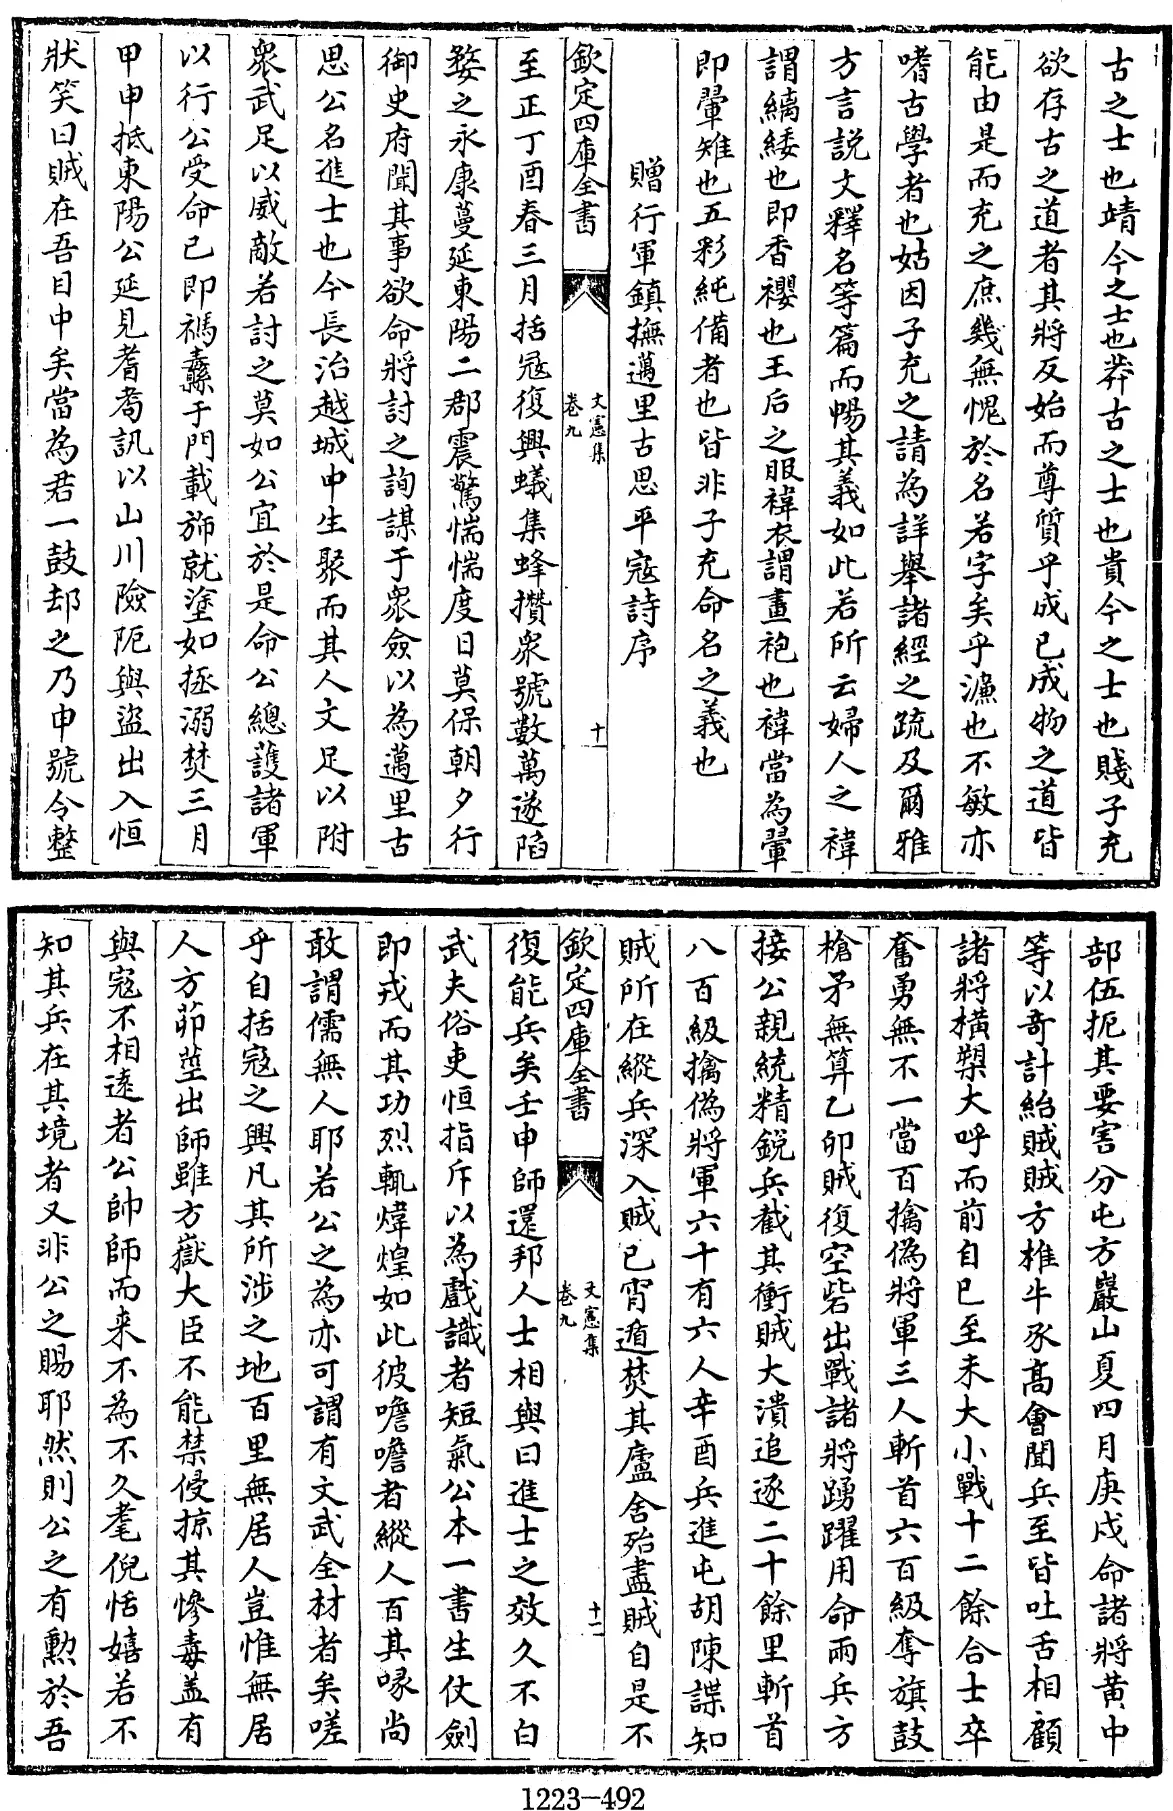 古之士也靖今之士也莽古之士也貴今之士也賤子充
欲存古之道者其將反始而尊質乎成已成物之道皆
能由是而充之庶幾無愧於名若字矣乎濂也不敏亦
嗜古學者也姑因子充之請為詳舉諸經之疏及爾雅
方言說文釋名等篇而暢其義如此若所云婦人之褘
謂縭緌也即香纓也王后之服褘衣謂畫袍也褘當為翬
即翬雉也五彩純備者也皆非子充命名之義也
贈行軍鎮撫邁里古思平寇詩序
欽定四庫全書
文憲集
卷九
十
至正丁酉春三月括寇復興蟻集蜂攢衆號數萬遂陷
婺之永康蔓延東陽二郡震驚惴惴度日莫保朝夕行
御史府聞其事欲命將討之詢謀于衆僉以為邁里古
思公名進士也今長治越城中生聚而其人文足以附
衆武足以威敵若討之莫如公宜於是命公總護諸軍
以行公受命已即禡纛于門載斾就塗如拯溺焚三月
甲申抵東陽公延見耆耇訊以山川險阨與盜出入恒
狀笑曰賊在吾目中矣當為君一鼓却之乃申號令整
部伍扼其要害分屯方巖山夏四月庚戌命諸將黄中
等以竒計紿賊賊方椎牛豕髙會聞兵至皆吐舌相顧
諸將橫槊大呼而前自巳至未大小戰十二餘合士卒
奮勇無不一當百擒偽將軍三人斬首六百級奪旗鼓
槍矛無算乙卯賊復空砦出戰諸將踴躍用命兩兵方
接公親統精鋭兵截其衝賊大潰追逐二十餘里斬首
八百級擒偽將軍六十有六人辛酉兵進屯胡陳諜知
賊所在縱兵深入賊已宵遁焚其廬舍殆盡賊自是不
欽定四庫全書
文憲集
卷九
十一
復能兵矣壬申師還邦人士相與曰進士之效久不白
武夫俗吏恒指斥以為戲識者短氣公本一書生仗劍
即戎而其功烈輒煒煌如此彼噡噡者縱人百其喙尚
敢謂儒無人耶若公之為亦可謂有文武全材者矣嗟
乎自括寇之興凡其所涉之地百里無居人豈惟無居
人方茆塋出師雖方嶽大臣不能禁侵掠其慘毒蓋有
與寇不相遠者公帥師而来不為不久耄倪恬嬉若不
知其兵在其境者又非公之賜耶然則公之有勲於吾
1223-492